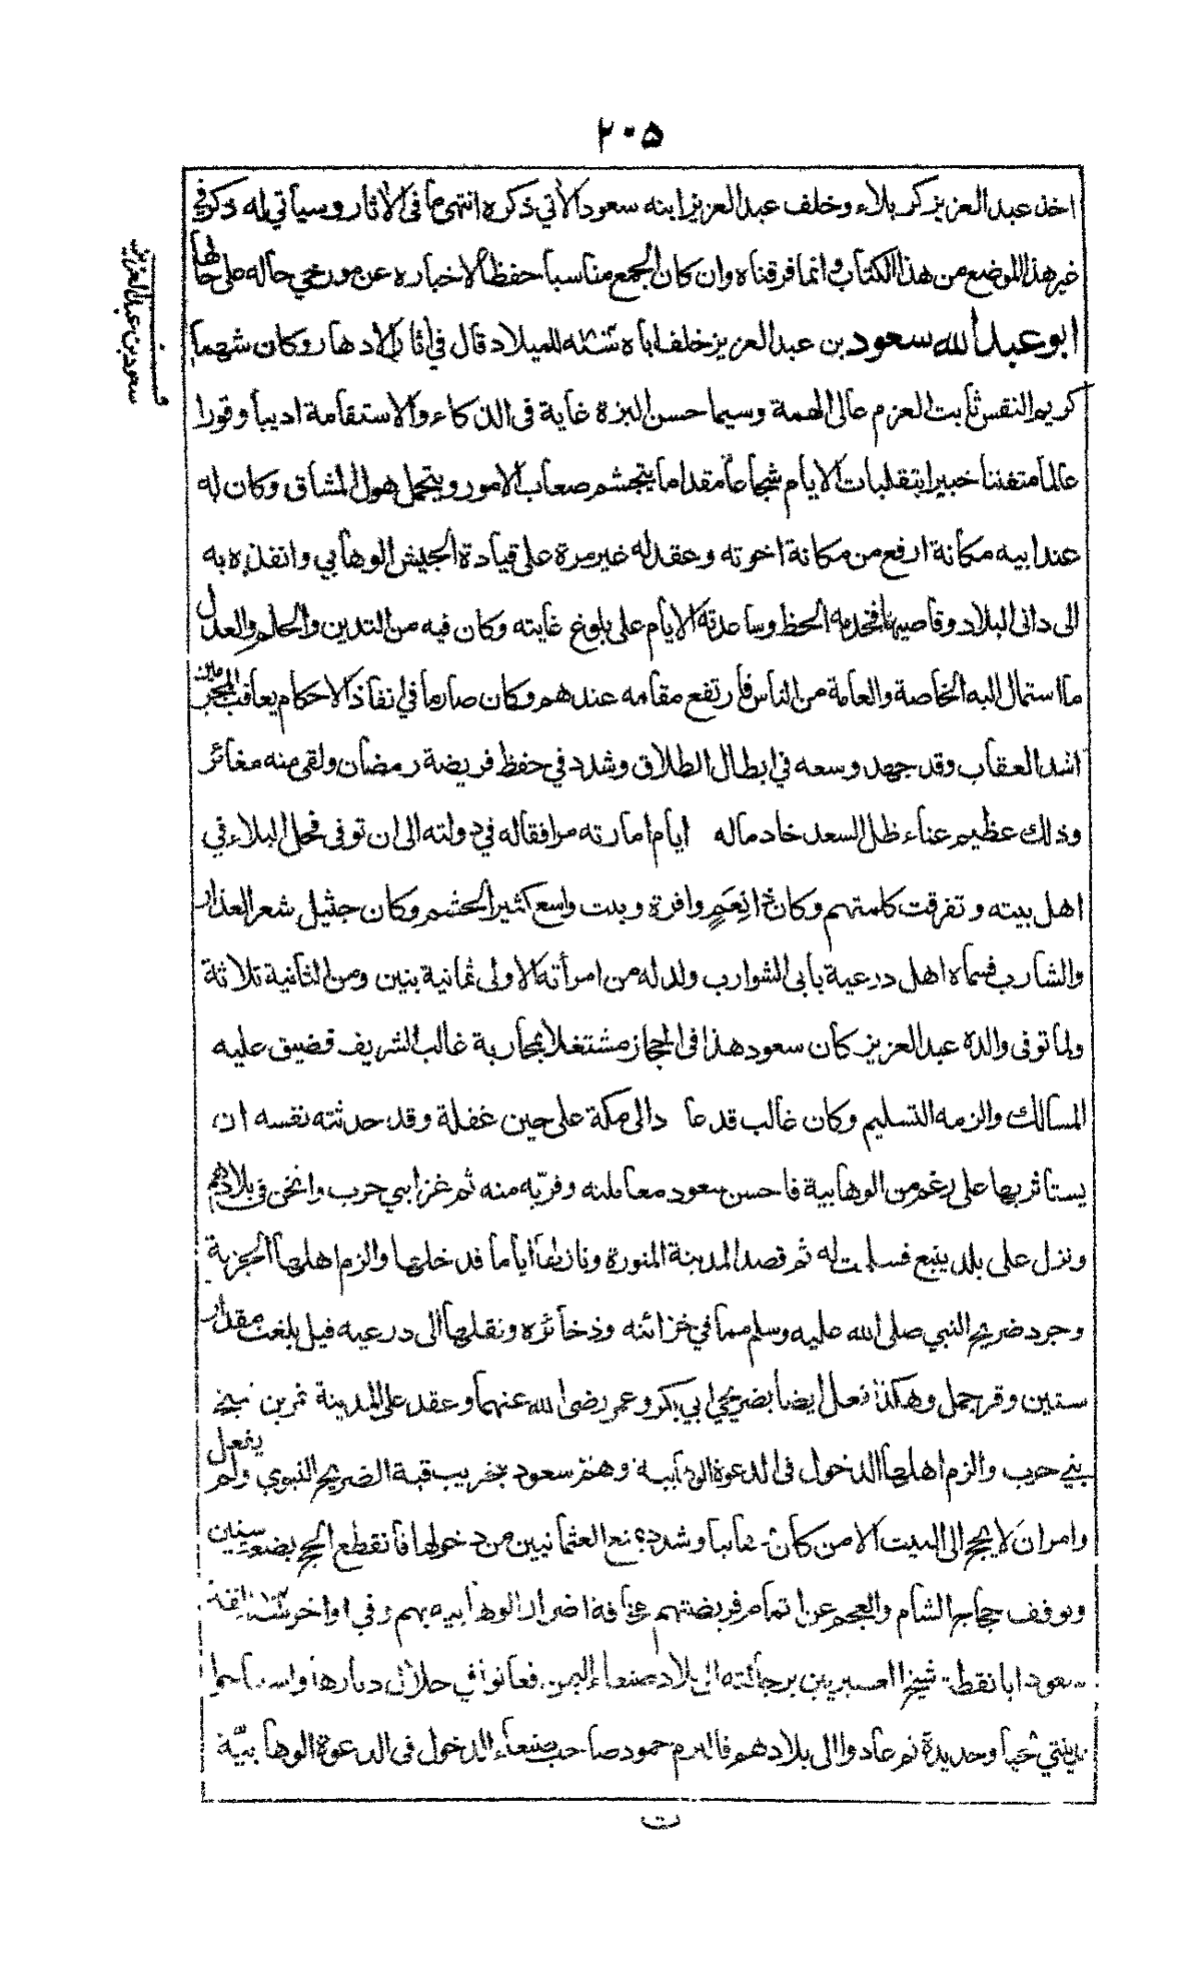 ٢٠٥
اخذ عبد العزيز كربلاء وخلف عبد العزيز ابنه سعود الأتي ذكره انتهى ما في الأثار وسيأتي له ذكر في
غير هذا الموضع من هذا الكتاب وانما فرقناه وان كان الجمع مناسبا حفظا لاخباره عن مورخي حاله على حالها
ابو عبد الله سعود بن عبد العزيز خلف اباه سنة للميلاد قال في أثار الادهار وكان شهما
كريم النفس ثابت العزم عالى الهمة وسيما حسن البزة غاية فى الذكاء والاستقامة اديبا وقورا
عالما متفننا خبيرا بتقلبات الايام شجاعا مقداما يتجشم صعاب الامور ويتحمل هول المشاق وكان له
عند ابيه مكانة ارفع من مكانة اخوته وعقد له غير مرة على قيادة الجيش الوهابي وانفذه به
الى دانى البلاد وقاصيها فخدمه الحظ وساعدته الايام على بلوغ غايته وكان فيه من التدين والحلم والعدل
ما استمال اليه الخاصة والعامة من الناس فارتفع مقامه عندهم وكان صارما في انفاذ الاحكام يعاقب المجرمين
اشد العقاب وقد جهد وسعه في ابطال الطلاق وشدد في حفظ فريضة رمضان ولقى منه مغائر
وذلك عظيم عناء ظل السعد خادما له ايام امارته مرافقا له في دولته الى ان توفى فحل البلاء في
اهل بيته وتفرقت كلمتهم وكان ذا نعم وافرة وبيت واسع كثير الحشم وكان جثيل شعر العذار
والشارب فسماه اهل درعية بابى الشوارب ولد له من امرأته الاولى ثمانية بنين ومن الثانية ثلاثة
ولما توفى والده عبد العزيز كان سعود هذا فى الحجاز مشتغلا بمحاربة غالب الشريف فضيق عليه
المسالك والزمه التسليم وكان غالب قد عا دالى مكة على حين غفلة وقد حدثته نفسه ان
يستاثر بها على رغم من الوهابية فاحسن سعود معاملته وقربه منه ثم غزا بني حرب واثخن في بلادهم
ونزل على بلد ينبع فسلمت له ثم قصد المدينة المنورة ونازلها اياما فدخلها والزم اهلها الجزية
وجرد ضريح النبي صلى الله عليه وسلم مما في خزائنه وذخائره ونقلها الى درعيه قيل بلغت مقدار
ستين وقر جمل وهكذا فعل ايضا بضريحي ابي بكر وعمر رضى الله عنهما وعقد على المدينة شيخ
بني حرب والزم اهلها الدخول فى الدعوة الوهابية وهم سعود بتخريب قبة الضريح النبوي ولم يفعل
وامر ان لا يحج الى البيت الا من كان وهابيا وشدد منع العثمانيين من دخولها فانقطع الحج بضع سنين
وتوقف حجاج الشام والعجم عن اتمام فريضتهم مخافة اضرار الوهابيه بهم وفي اواخر سنة
سعود ابا نقطة شيخ العسيريين برجالته الى بلاد صنعاء اليمن فعاثوا في خلال ديارها
مدينتي وحديدة ثم عادوا الى بلادهم فالتزم حمود صاحب صنعاء الدخول فى الدعوة الوهابيّة
ت
سعود بن عبد العزيز